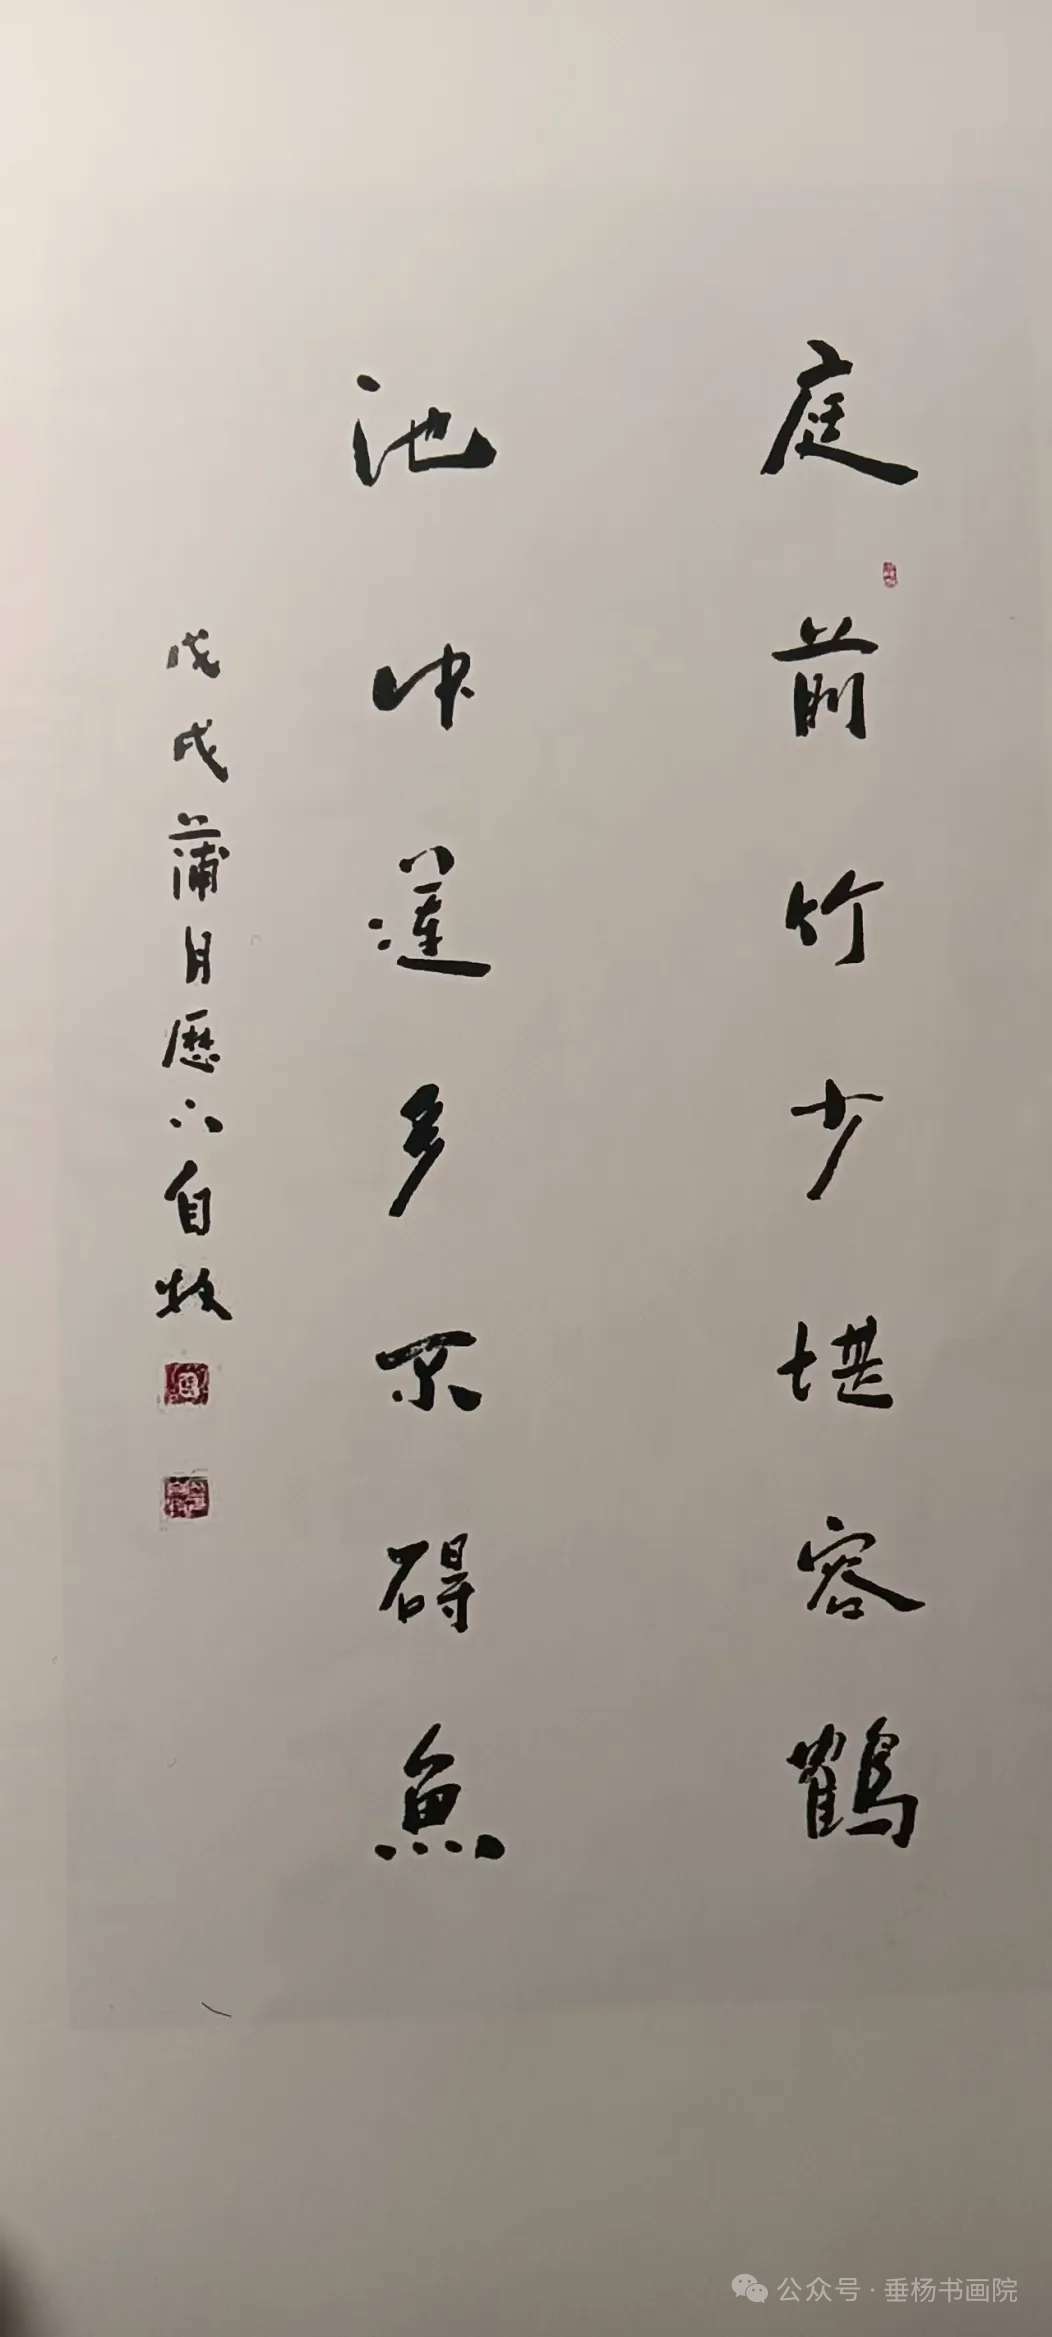 庭前竹少堪容鶴
池中蓮多不礙魚
戊戌蒲月歷下自牧
公众号·垂杨书画院